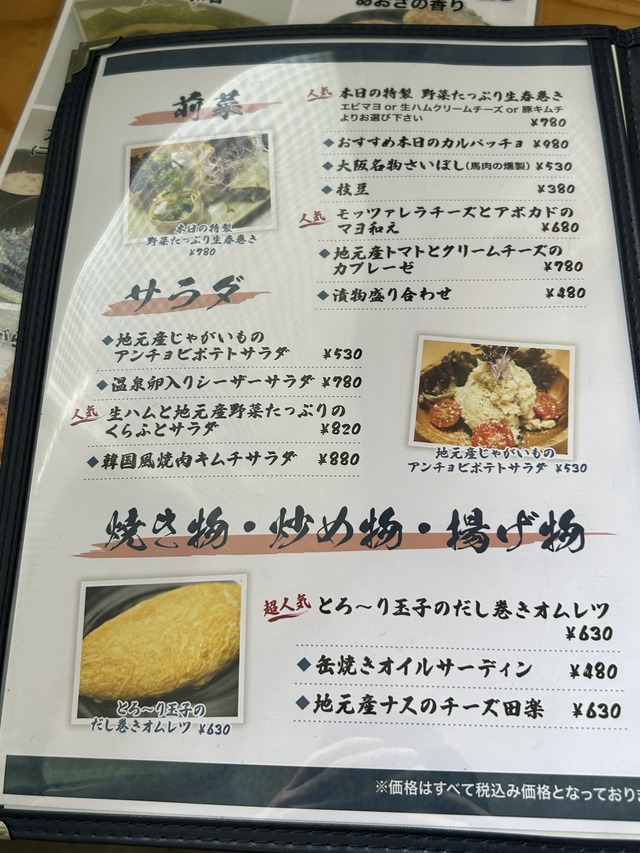 あおさの香り
前菜
人気 本日の特製 野菜たっぷり生春巻き
エビマヨ or 生ハムクリームチーズ or 豚キムチ
よりお選び下さい
¥780
◆おすすめ本日のカルパッチョ ¥980
◆大阪名物さいぼし(馬肉の燻製) ¥530
◆枝豆 ¥380
人気 モッツァレラチーズとアボカドの
マヨ和え ¥680
◆地元産トマトとクリームチーズの
カプレーゼ ¥780
◆漬物盛り合わせ ¥480
本日の特製
野菜たっぷり生春巻き
¥780
サラダ
◆地元産じゃがいもの
アンチョビポテトサラダ ¥530
◆温泉卵入りシーザーサラダ ¥780
人気 生ハムと地元産野菜たっぷりの
くらふとサラダ ¥820
◆韓国風焼肉キムチサラダ ¥880
地元産じゃがいもの
アンチョビポテトサラダ ¥530
焼き物・炒め物・揚げ物
超人気 とろ〜り玉子のだし巻きオムレツ
¥630
◆缶焼きオイルサーディン ¥480
◆地元産ナスのチーズ田楽 ¥630
とろ〜り玉子の
だし巻きオムレツ ¥630
※価格はすべて税込み価格となっておりま